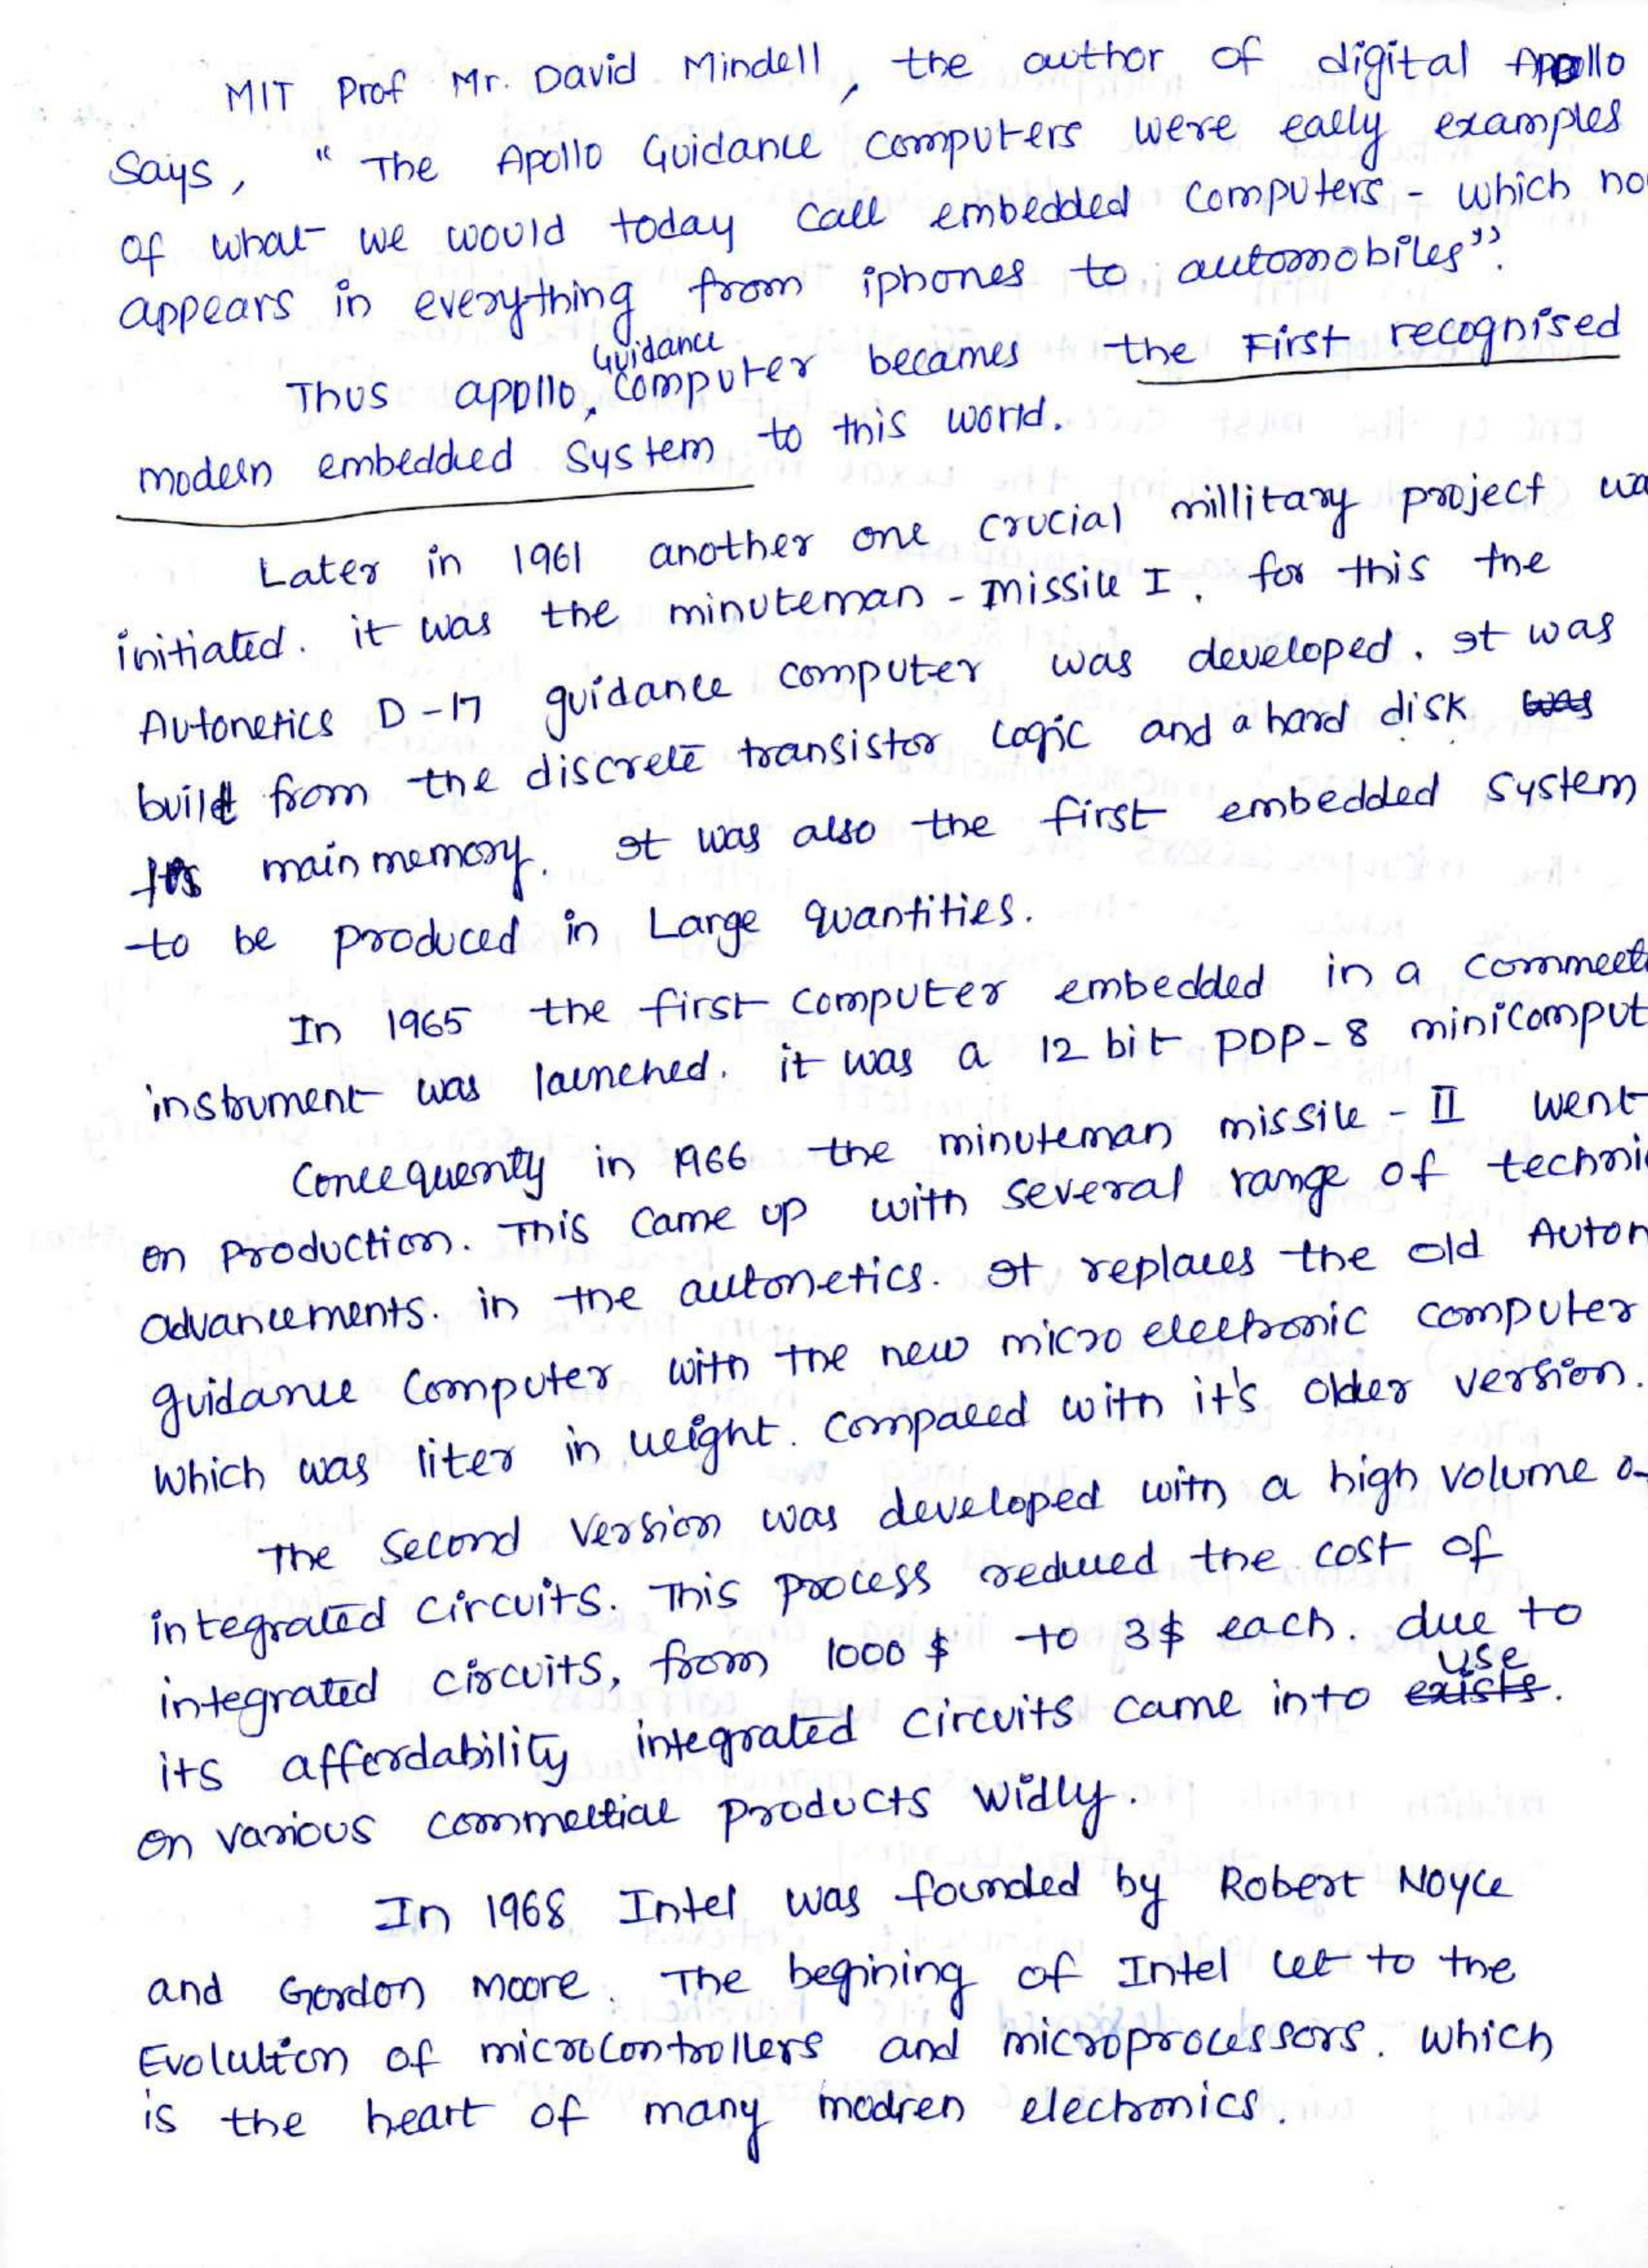 MIT Prof Mr. David Mindell, the author of digital Apollo
Says, " The Apollo Guidance computers were eally examples
of what we would today call embedded computers - which no
appears in everything from iphones to automobiles".
Thus apollo Guidance computer becames the First recognised
modern embedded System to this world.
Later in 1961 another one crucial millitary project wa
initiated. it was the minuteman - missile I. for this the
Autonetics D-17 guidance computer was developed. It was
built from the discrete transistor logic and a hard disk was
its main memory. It was also the first embedded system
to be produced in Large quantities.
In 1965 the first computer embedded in a commerc
instrument was launched. it was a 12 bit PDP-8 minicomput
Concequently in 1966 the minuteman missile - II went
on production. This came up with several range of techni
advancements. in the autonetics. It replaces the old Auton
guidance computer with the new micro electronic computer
which was liter in weight. compared with it's older version.
The second version was developed with a high volume o
integrated circuits. This process reduced the cost of
integrated circuits, from 1000 $ to 3$ each. due to
its affordability integrated circuits came into exists use.
on various commercial products widly.
In 1968 Intel was founded by Robert Noyce
and Gordon Moore. The begining of Intel let to the
Evolution of microcontrollers and microprocessors. which
is the heart of many modren electronics.